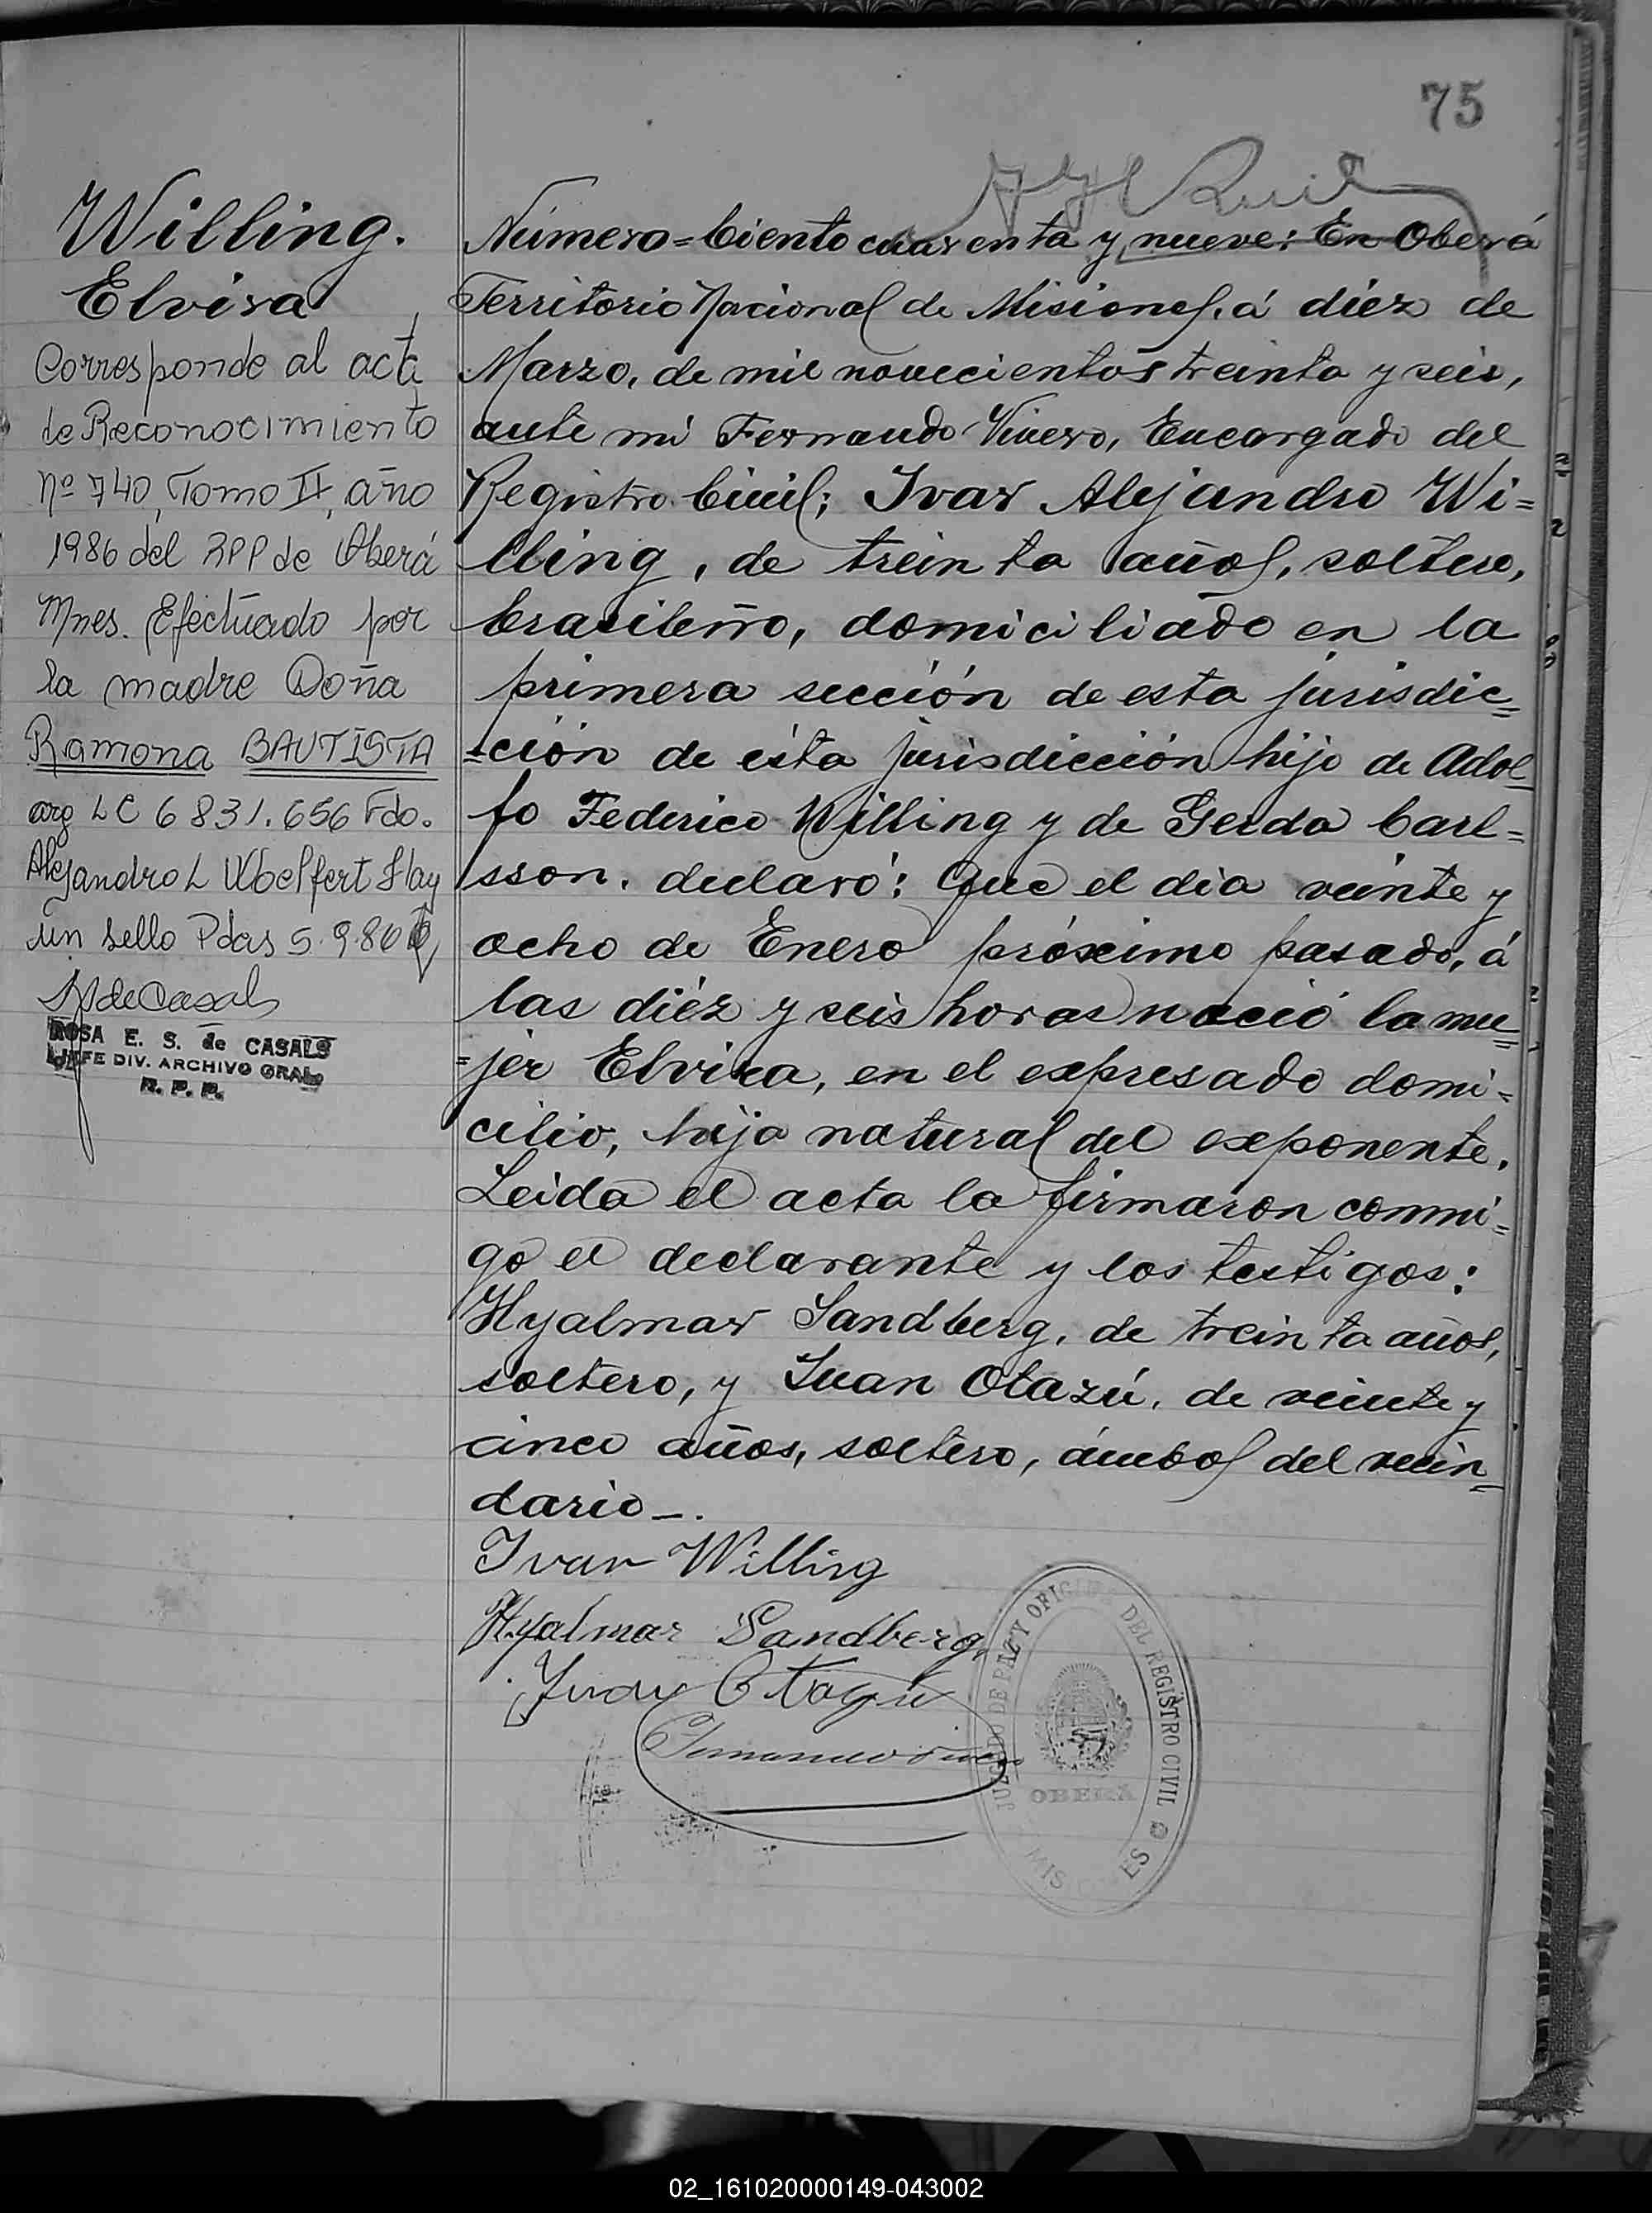 75
Willing.
Elvira
Corresponde al acta
de Reconocimiento
Nº 740, Tomo II, año
1986 del RPP de Oberá
Mnes. Efectuado por
la madre Doña
Ramona BAUTISTA
arg LC 6 831.656 Fdo.
Alejandro L Woelffert Hay
un sello Pdas 5.9.86
ROSA E. S. de CASALS
JEFE DIV. ARCHIVO GRAL
R. P. P.
Número=Ciento cuarenta y nueve: En Oberá
Territorio Nacional de Misiones, á diez de
Marzo, de mil novecientos treinta y seis,
ante mi Fernando Vivero, Encargado del
Registro Civil; Ivar Alejandro Wi=
lling, de treinta años, soltero,
brasileño, domiciliado en la
primera sección de esta jurisdic=
=ción de ésta jurisdicción hijo de Adol
fo Federico Willing y de Gerda Carl=
sson, declaró: Que el día veinte y
ocho de Enero próximo pasado, á
las diéz y seis horas nació la mu=
=jer Elvira, en el expresado domi=
cilio, hija natural del exponente.
Leida el acta la firmaron conmi=
go el declarante y los testigos:
Hyalmar Sandberg, de treinta años,
soltero, y Juan Otazú, de veinte y
cinco años, soltero, ámbos del vecin=
dario_.
Ivar Willing
Hyalmar Sandberg
Juan Otazu
JUZGADO DE PAZ Y OFICINA DEL REGISTRO CIVIL
OBERÁ
MISIONES
02_161020000149-043002